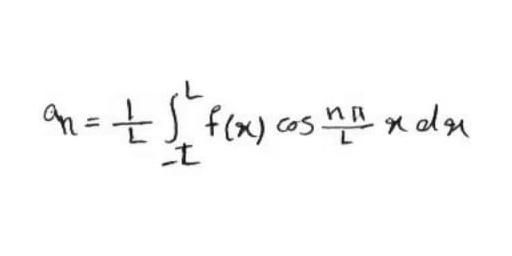 aₙ = 1/L ∫_{-L}^{L} f(x) cos nπ/L x dx